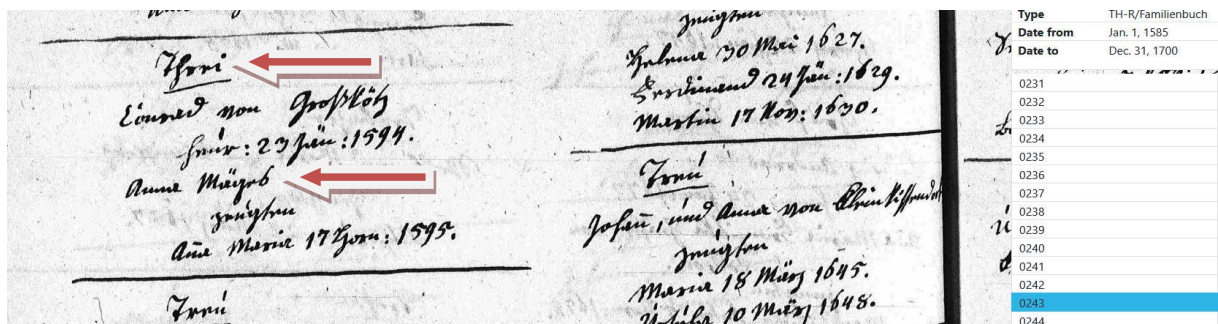 Threi
Conrad von Großkötz
heür: 23 Jäü: 1594.
Anna Mäges
zeügten
Aña Maria 17 Horn: 1595.
Treü
zeügten
Helena 30 Mai 1627.
Ferdinand 24 Jäñ: 1629.
Martin 17 Nov: 1630.
Treü
Johañ, und Anna von Kleinkissendorf
zeügten
Maria 18 März 1645.
10 März 1648.
Type TH-R/Familienbuch
Date from Jan. 1, 1585
Date to Dec. 31, 1700
0231
0232
0233
0234
0235
0236
0237
0238
0239
0240
0241
0242
0243
0244